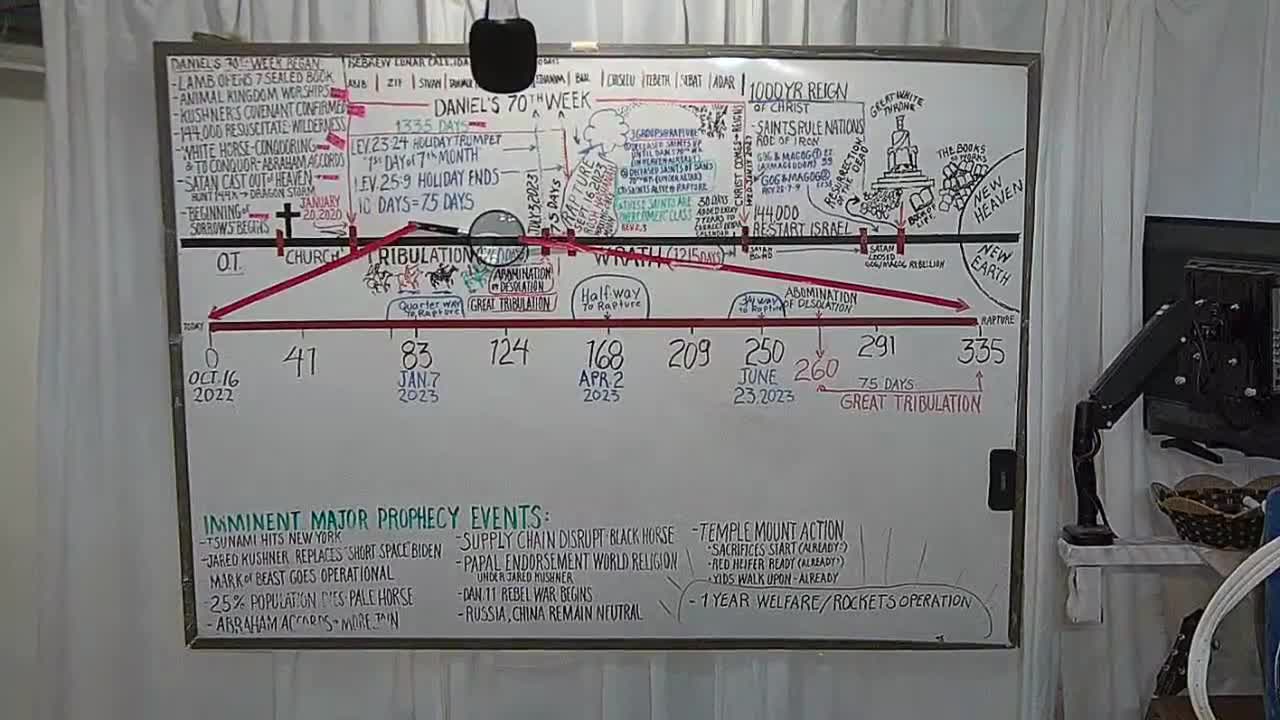 DANIEL'S 70TH WEEK BEGAN
-LAMB OPENS 7 SEALED BOOK
-ANIMAL KINGDOM WORSHIPS
-KUSHNER'S COVENANT CONFIRMED
-144,000 RESUSCITATE: WILDERNESS
-WHITE HORSE-CONQUORING
& TO CONQUOR-ABRAHAM ACCORDS
-SATAN CAST OUT OF HEAVEN
HUNT 144K → DRAGON STORM
-BEGINNING OF
SORROWS BEGINS
JANUARY
20, 2020
HEBREW LUNAR
ABIB | ZIF | SIVAN
BUL | CHISLEU | TEBETH | SEBAT | ADAR
DANIEL'S 70TH WEEK
1335 DAYS
LEV. 23:24 HOLIDAY TRUMPET
1ST DAY OF 7TH MONTH
LEV. 25:9 HOLIDAY ENDS
10 DAYS = 75 DAYS
75 DAYS
RAPTURE
3 GROUPS @ RAPTURE
DECEASED SAINTS UP
DECEASED SAINTS
SAINTS ALIVE @ RAPTURE
THESE SAINTS ARE
OVERCOMERS CLASS
REV. 2,3
30 DAYS
CHRIST COMES & REIGNS
1000 YR REIGN
OF CHRIST
-SAINTS RULE NATIONS
ROD OF IRON
GOG & MAGOG
(ARMAGEDDON)
GOG & MAGOG
REV 20:7-9
144,000
RESTART ISRAEL
RESURRECTION
OF THE DEAD
GREAT WHITE
THRONE
THE BOOKS
OF WORKS
BOOK OF
LIFE
NEW
HEAVEN
NEW
EARTH
O.T.
CHURCH
TRIBULATION
WRATH (1215 DAYS)
SATAN
BOUND
SATAN
LOOSED
GOG/MAGOG REBELLION
ABOMINATION
OF DESOLATION
GREAT TRIBULATION
Quarter way
To Rapture
Half way
To Rapture
3/4 way
to Rapture
ABOMINATION
OF DESOLATION
TODAY
RAPTURE
0 41 83 124 168 209 250 260 291 335
OCT. 16
2022
JAN. 7
2023
APR. 2
2023
JUNE
23, 2023
75 DAYS
GREAT TRIBULATION
IMMINENT MAJOR PROPHECY EVENTS:
-TSUNAMI HITS NEW YORK
-JARED KUSHNER REPLACES "SHORT SPACE" BIDEN
MARK OF BEAST GOES OPERATIONAL
-25% POPULATION DIES-PALE HORSE
-ABRAHAM ACCORDS-MORE JOIN
-SUPPLY CHAIN DISRUPT-BLACK HORSE
-PAPAL ENDORSEMENT WORLD RELIGION
UNDER JARED KUSHNER
-DAN. 11 REBEL WAR BEGINS
-RUSSIA, CHINA REMAIN NEUTRAL
-TEMPLE MOUNT ACTION
-SACRIFICES START (ALREADY?)
-RED HEIFER READY (ALREADY?)
-YIDS WALK UPON-ALREADY
-1 YEAR WELFARE/ROCKETS OPERATION